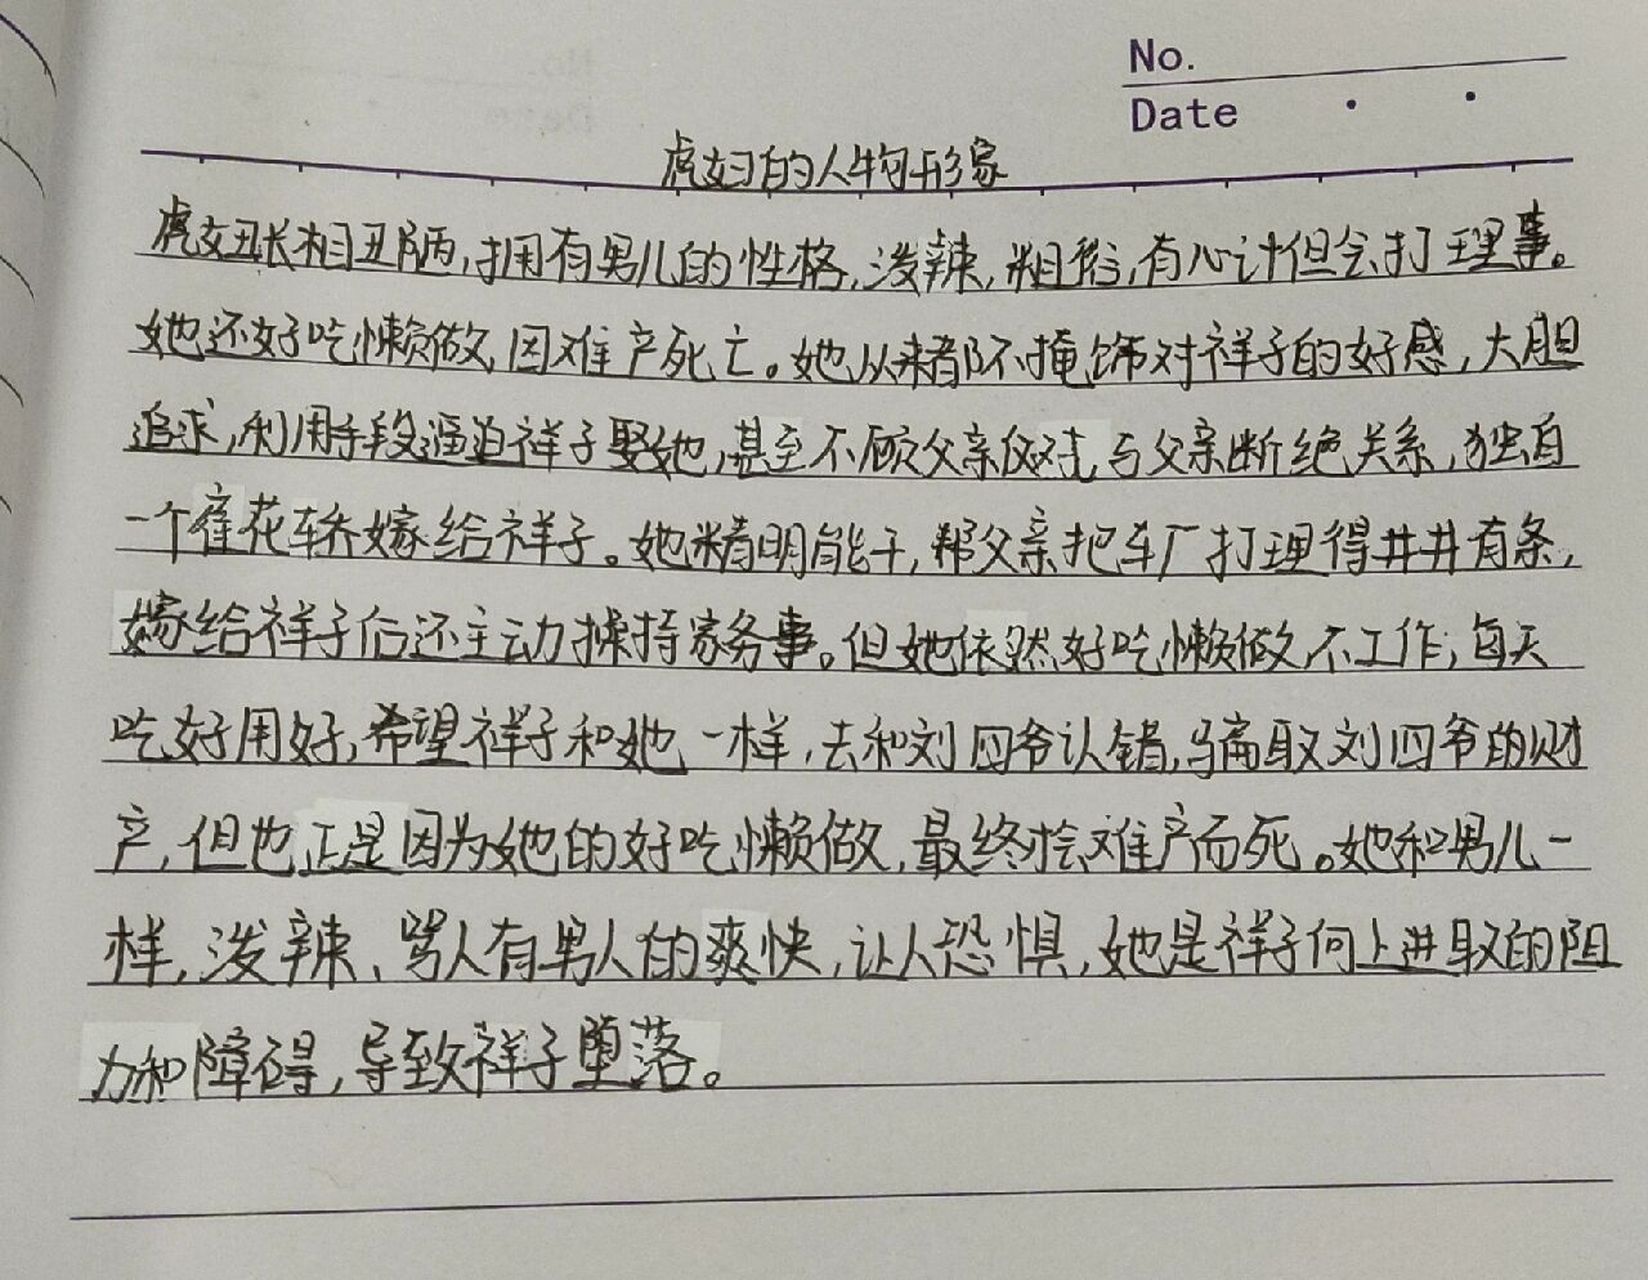 No.
Date
虎妞的人物形象
虎妞长相丑陋,拥有男儿的性格,泼辣,粗俗,有心计但会打理事。
她还好吃懒做,因难产死亡。她从来都不掩饰对祥子的好感,大胆
追求,利用手段逼迫祥子娶她,甚至不顾父亲反对,与父亲断绝关系,独自
一个雇花轿嫁给祥子。她精明能干,帮父亲把车厂打理得井井有条,
嫁给祥子后还主动操持家务事。但她依然好吃懒做不工作,每天
吃好用好,希望祥子和她一样,去和刘四爷认错,骗取刘四爷的财
产,但也正是因为她的好吃懒做,最终难产而死。她和男儿一
样,泼辣、骂人有男人的爽快,让人恐惧,她是祥子向上进取的阻
力和障碍,导致祥子堕落。